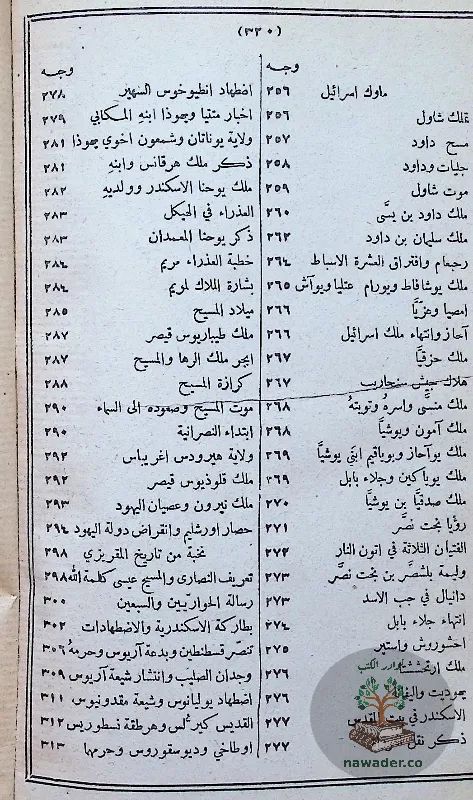 (٣٢٠)
وجه
ملوك اسرائيل ٢٥٦
تملك شاول ٢٥٦
مسح داود ٢٥٧
جليات وداود ٢٥٨
موت شاول ٢٥٩
ملك داود بن يسَّى ٢٦٠
ملك سليمان بن داود ٢٦٢
رحبعام وافتراق العشرة الاسباط ٢٦٤
ملك يوشافاط ويورام عتليا ويوآش ٢٦٥
امصيا وعزيَّا ٢٦٦
آحاز وانتهاء ملك اسرائيل ٢٦٦
ملك حزقيَّا ٢٦٧
هلاك جيش سنحاريب ٢٦٧
ملك منسَّى واسرهُ وتوبتهُ ٢٦٨
ملك آمون ويوشيَّا ٢٦٨
ملك يوآحاز ويوياقيم ابنَي يوشيَّا ٢٦٩
ملك يوياكين وجلاء بابل ٢٦٩
ملك صدقيَّا بن يوشيَّا ٢٧٠
رؤيا بخت نصَّر ٢٧١
الفتيان الثلاثة في اتون النار ٢٧٢
وليمة بلشصَّر بن بخت نصَّر ٢٧٣
دانيال في جب الاسد ٢٧٣
انتهاء جلاء بابل ٢٧٤
احشوروش واستير ٢٧٥
ملك ارتحششتا ٢٧٦
يهوديت واليفانا ٢٧٦
الاسكندر في بيت المقدس ٢٧٧
ذكر نقل ٢٧٧
وجه
اضطهاد انطيوخوس الشهير ٢٧٨
اخبار متتيا ويهوذا ابنهِ المكابي ٢٧٩
ولاية يوناتان وشمعون اخوي يهوذا ٢٨١
ذكر ملك هرقانس وابنهِ ٢٨١
ملك يوحنا الاسكندر وولديهِ ٢٨٢
العذراء في الهيكل ٢٨٣
ذكر يوحنا المعمدان ٢٨٣
خطبة العذراء مريم ٢٨٤
بشارة الملاك لمريم ٢٨٤
ميلاد المسيح ٢٨٥
ملك طيباريوس قيصر ٢٨٧
ابجر ملك الرها والمسيح ٢٨٧
كرازة المسيح ٢٨٨
موت المسيح وصعوده الى السماء ٢٩٠
ابتداء النصرانية ٢٩٠
ولاية هيرودس اغريباس ٢٩٢
ملك قلوذيوس قيصر ٢٩٢
ملك نيرون وعصيان اليهود ٢٩٣
حصار اورشليم وانقراض دولة اليهود ٢٩٤
نخبة من تاريخ المقريزي ٢٩٨
تعريف النصارى والمسيح عيسى كلمة الله ٢٩٨
رسالة الحواريّين والسبعين ٣٠٠
بطاركة الاسكندرية والاضطهادات ٣٠٢
تنصّر قسطنطين وبدعة آريوس وحرمهُ ٣٠٦
وجدان الصليب وانتشار شيعة آريوس ٣٠٩
اضطهاد يوليانوس وشيعة مقدونيوس ٣١١
القديس كيرلُّس وهرطقة نسطوريس ٣١٢
اوطاخي وديوسقوروس وحرمها ٣١٣
نوادر الكتب
nawader.co